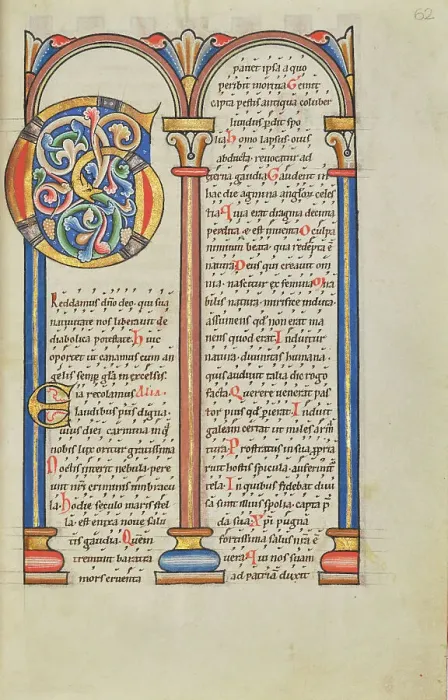 62
Reddamus dño deo. qui sua
natiuitate nos liberauit de
diabolica potestate. huic
oportet ut canamus cum an
gelis semp gła in excelsis.
Eia recolamus Alia.
laudibus piis digna.
uius diei carmina in q̇
nobis lux oritur gratissima
Noctis interit nebula. pere
unt nr̃i criminis umbracu
la. hodie seculo maris stel
la. est enixa noue salu
tis gaudia. Quem
tremunt baratra
mors cruenta
pauet ipsa a quo
peribit mortua Gemit
capta pestis antiqua coluber
liuidus p̱dit spo
lia homo lapsus. ouis
abducta. reuocatur ad
eterna gaudia Gaudent in
hac die agmina anglor̃ celes
tia Quia erat dragma decima
perdita. & est inuenta O culpa
nimium beata. qua redẽpta ẽ
natura Deus qui creauit om
nia. nascitur ex femina Mira
bilis natura. mirifice induta
assumens qd non erat ma
nens quod erat Induitur
natura. diuinitas humana.
quis audiuit talia dic rogo
facta Querere uenerat pas
tor pius qd pierat. Induit
galeam certat ut miles arm̃
tura Prostratus in sua ppria
ruit hostis spicula. auferunt̃
tela. In quibus fidebat diui
sa sunt illius spolia. capta p̱
da sua Xpi pugna
fortissima salus nr̃a ẽ
uera Qui nos suam
ad patriã duxit